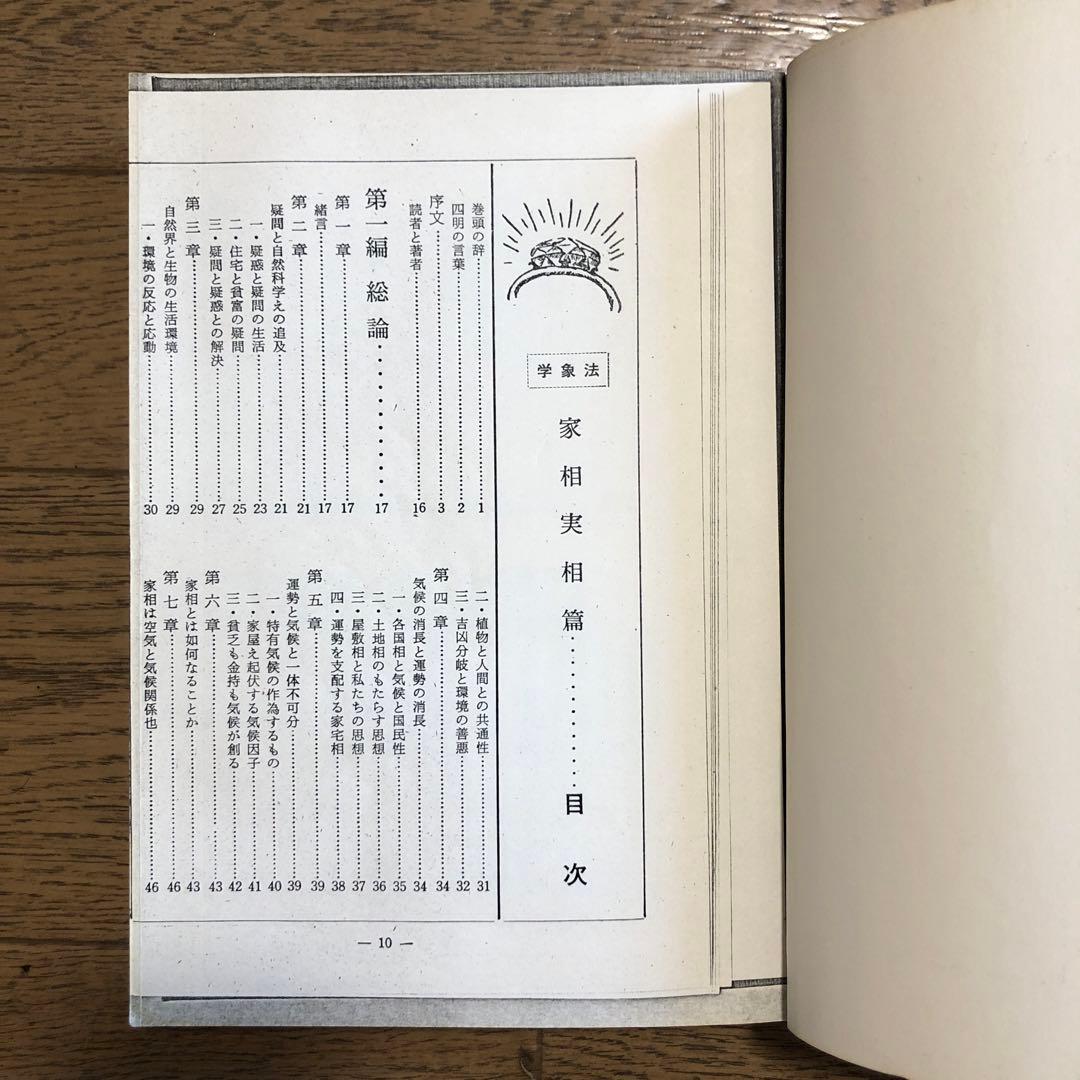 学象法
家相実相篇・・・・・・・・・・目次
巻頭の辞……1
四明の言葉……2
序文……3
読者と著者……16
第一編 総論・・・・・・・・・・17
第一章……17
緒言……17
第二章……21
疑問と自然科学えの追及……21
一・疑惑と疑問の生活……23
二・住宅と貧富の疑問……25
三・疑問と疑惑との解決……27
第三章……29
自然界と生物の生活環境……29
一・環境の反応と応動……30
二・植物と人間との共通性……31
三・吉凶分岐と環境の善悪……32
第四章……34
気候の消長と運勢の消長……34
一・各国相と気候と国民性……35
二・土地相のもたらす思想……36
三・屋敷相と私たちの思想……37
四・運勢を支配する家宅相……38
第五章……39
運勢と気候と一体不可分……39
一・特有気候の作為するもの……40
二・家屋え起伏する気候因子……41
三・貧乏も金持も気候が創る……42
第六章……43
家相とは如何なることか……43
第七章……46
家相は空気と気候関係也……46
— 10 —